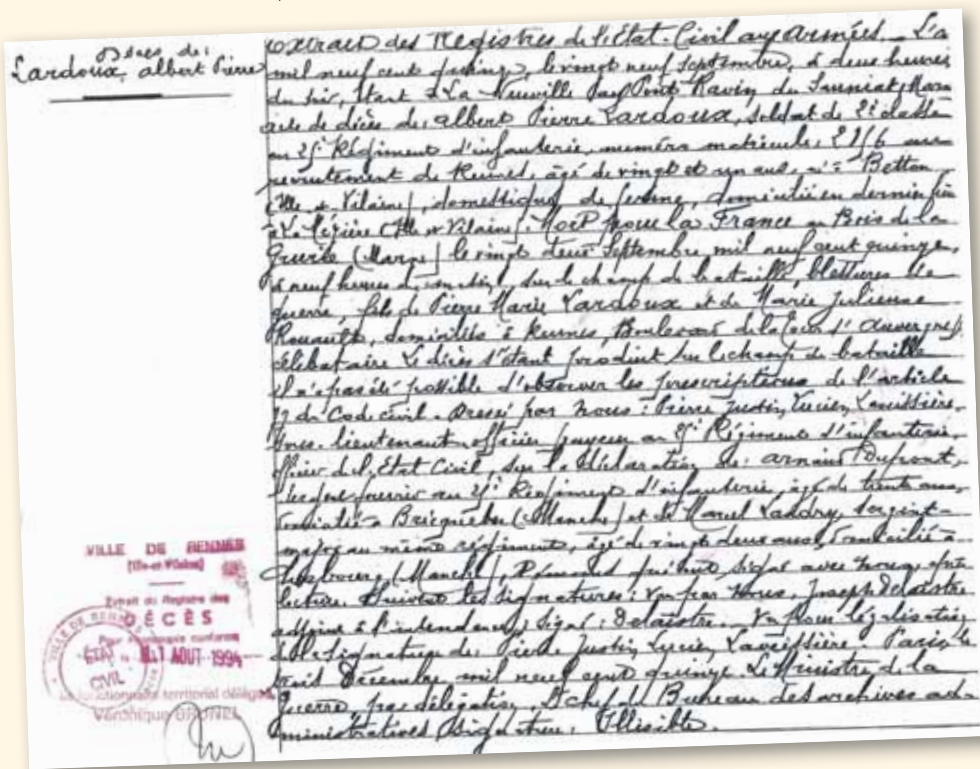 Décès de:
Lardoux, albert Pierre
extrait des Registres de l'Etat-Civil aux Armées. L'a
mil neuf cent quinze, le vingt neuf septembre, à deux heures
du soir, étant à La Neuville au Pont Ravin du
acte de décès de: albert Pierre Lardoux, soldat de 2è classe
au 25è Régiment d'infanterie, numéro matricule: au
recrutement de Rennes, âgé de vingt et un ans, né à Betton
(Ille et Vilaine), domestique de ferme, domicilié en dernier lieu
à La Mézière (Ille et Vilaine). Mort pour la France au Bois de la
Grurie (Marne) le vingt deux Septembre mil neuf cent quinze,
à neuf heures du matin, sur le champ de bataille, blessures de
guerre, fils de Pierre Marie Lardoux et de Marie Julienne
Rouault, domiciliés à Rennes, Boulevard de la Tour d'Auvergne,
célibataire Le décès s'étant produit sur le champ de bataille
il n'a pas été possible d'observer les prescriptions de l'article
77 du Code civil. Dressé par Nous: Pierre Justin, Lucien, Laveissière,
Sous-lieutenant officier payeur au 25è Régiment d'infanterie,
officier de l'Etat Civil, sur la déclaration de: Dupont,
fourrier au 25è Régiment d'infanterie, âgé de trente ans,
domicilié à Bricquebec (Manche) et de Marcel Landry, sergent-
major au même régiment, âgé de vingt deux ans, domicilié à
Cherbourg (Manche), témoins qui ont signé avec Nous, après
lecture. Suivent les signatures: Vu par Nous, Joseph Delaistre
adjoint à l'intendance, signé: Delaistre. Vu pour légalisation
de la signature de Pierre Justin, Lucien, Laveissière. Paris, le
trois Décembre mil neuf cent quinze. Le Ministre de la
Guerre, par délégation, Le chef du Bureau des archives ad-
ministratives Signature: Illisible.
VILLE DE RENNES
(Ille-et-Vilaine)
Extrait du Registre des
DÉCÈS
Pour copie conforme
VILLE DE RENNES
ÉTAT CIVIL
AOUT 1994
Le fonctionnaire territorial délégué,
Véronique BRUNEL